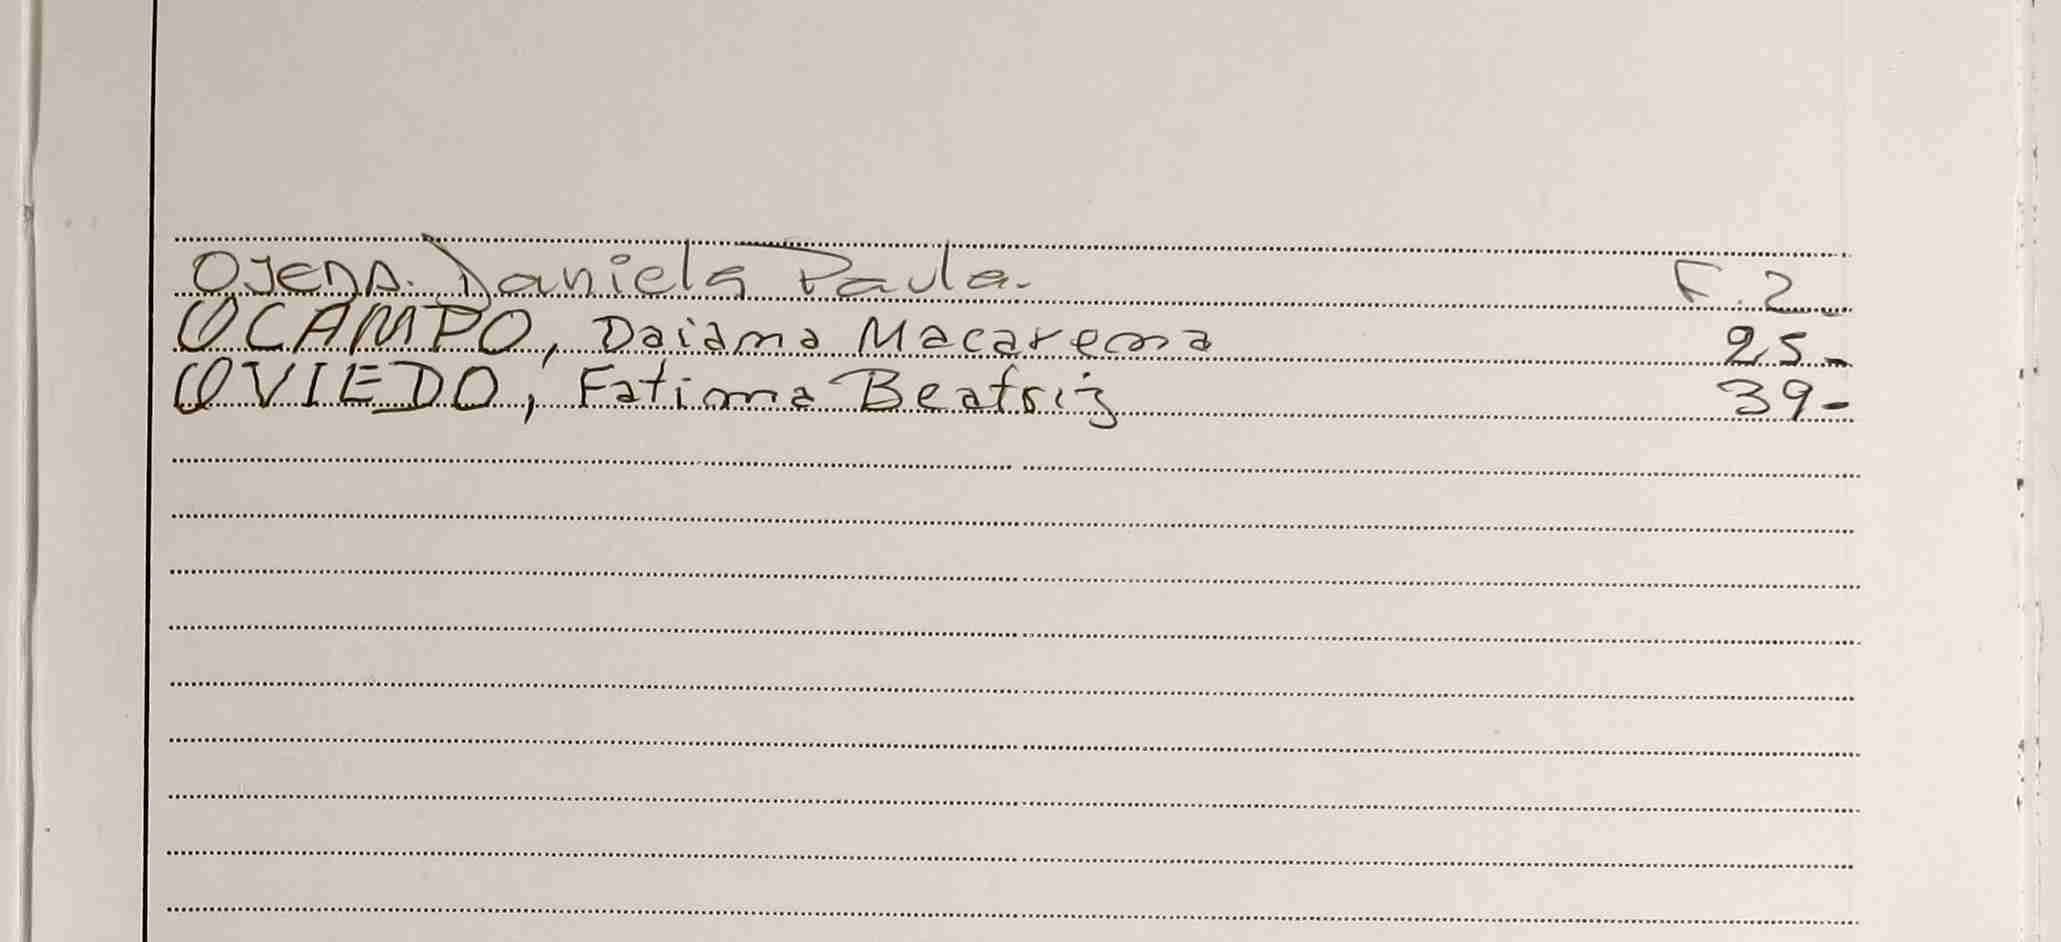 OJEDA. Daniela Paula. F. 2
OCAMPO, Daiana Macarena 25-
OVIEDO, Fatima Beatriz 39-